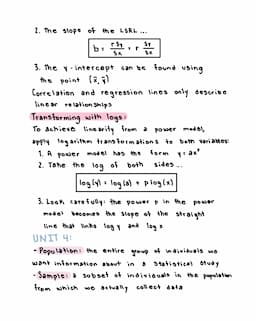 2. The slope of the LSRL ...
b = r Sy / Sx = r Sy / Sx
3. The y-intercept can be found using
the point (x̄, ȳ)
Correlation and regression lines only describe
linear relationships
Transforming with logs:
To achieve linearity from a power model,
apply logarithm transformations to both variables:
1. A power model has the form y = axᵖ
2. Take the log of both sides ...
log(y) = log(a) + p log(x)
3. Look carefully: the power p in the power
model becomes the slope of the straight
line that links log y and log x
UNIT 4:
- Population: the entire group of individuals we
want information about in a statistical study
- Sample: a subset of individuals in the population
from which we actually collect data